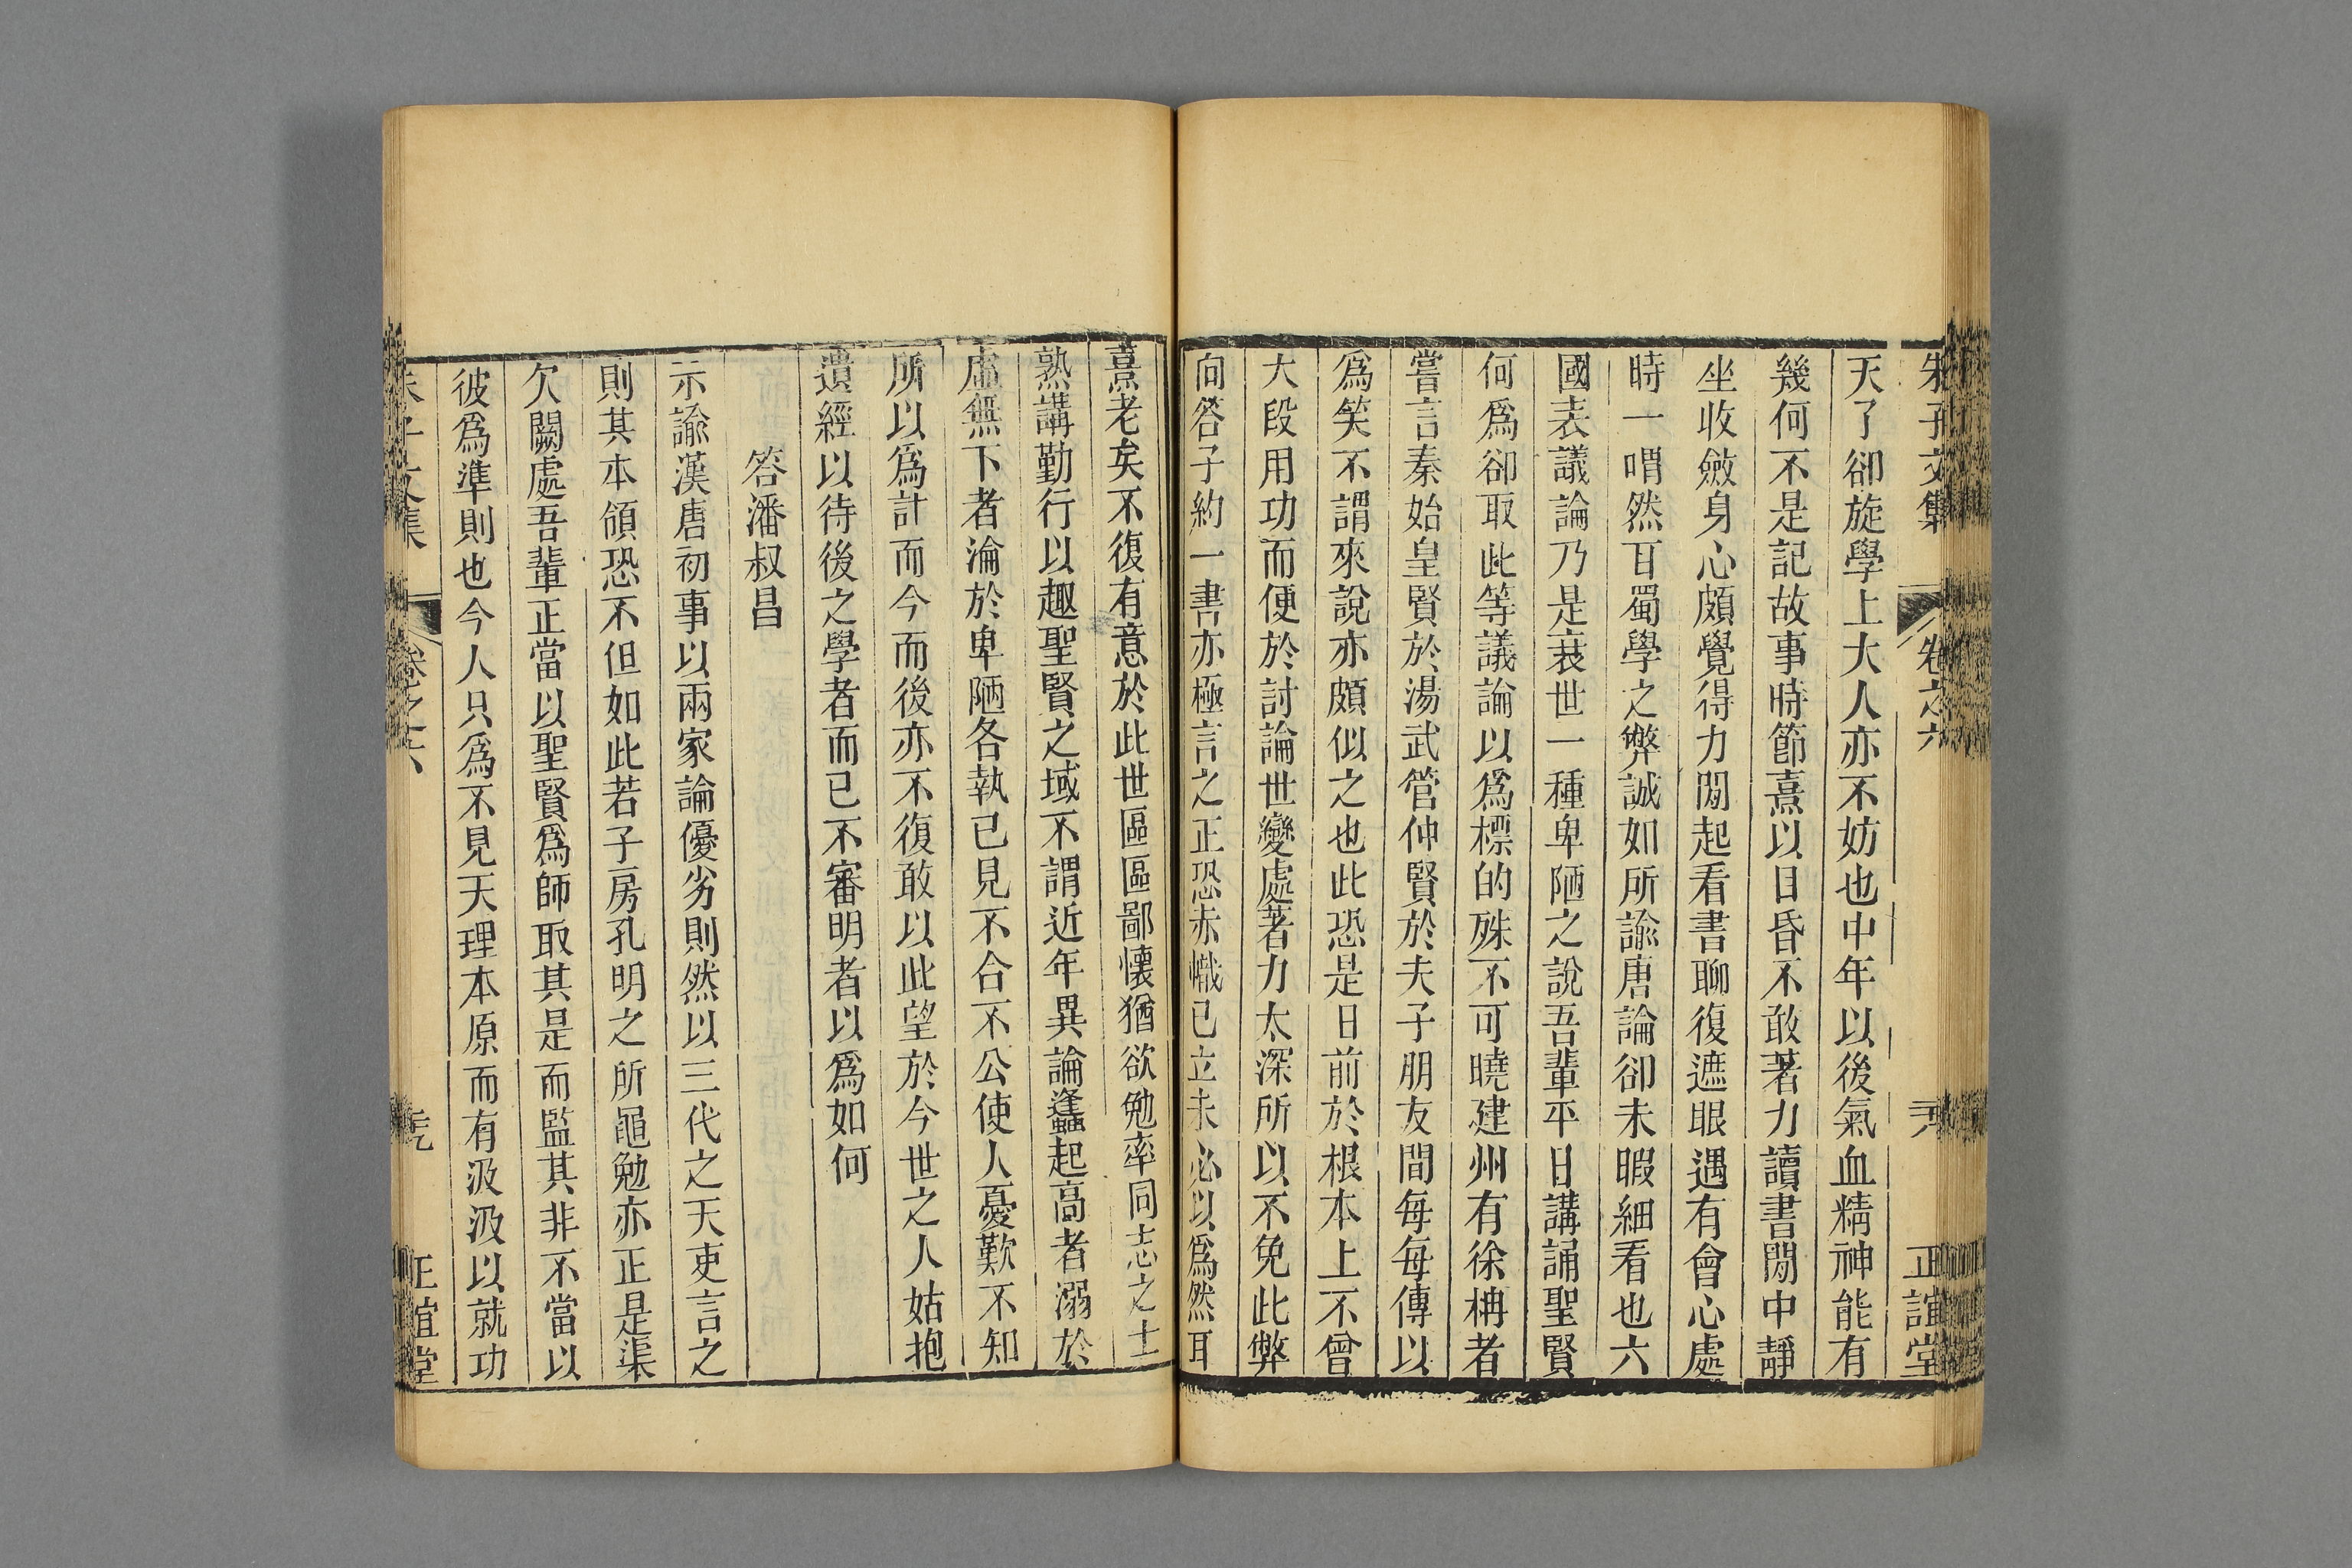 朱子文集 卷之六 正誼堂
天了卻旋學上大人亦不妨也中年以後氣血精神能有
幾何不是記故事時節熹以目昏不敢著力讀書閒中靜
坐收斂身心頗覺得力閒起看書聊復遮眼遇有會心處
時一喟然耳蜀學之弊誠如所諭唐論卻未暇細看也六
國表議論乃是衰世一種卑陋之說吾輩平日講誦聖賢
何爲卻取此等議論以爲標的殊不可曉建州有徐柟者
嘗言秦始皇賢於湯武管仲賢於夫子朋友間每每傳以
爲笑不謂來說亦頗似之也此恐是日前於根本上不曾
大段用功而便於討論世變處著力太深所以不免此弊
向答子約一書亦極言之正恐赤幟已立未必以爲然耳
熹老矣不復有意於此世區區鄙懷猶欲勉率同志之士
熟講勤行以趣聖賢之域不謂近年異論蠭起高者溺於
虛無下者淪於卑陋各執己見不合不公使人憂歎不知
所以爲計而今而後亦不復敢以此望於今世之人姑抱
遺經以待後之學者而已不審明者以爲如何
答潘叔昌
示諭漢唐初事以兩家論優劣則然以三代之天吏言之
則其本領恐不但如此若子房孔明之所黽勉亦正是渠
欠闕處吾輩正當以聖賢爲師取其是而監其非不當以
彼爲準則也今人只爲不見天理本原而有汲汲以就功
朱子文集 卷之六 正誼堂